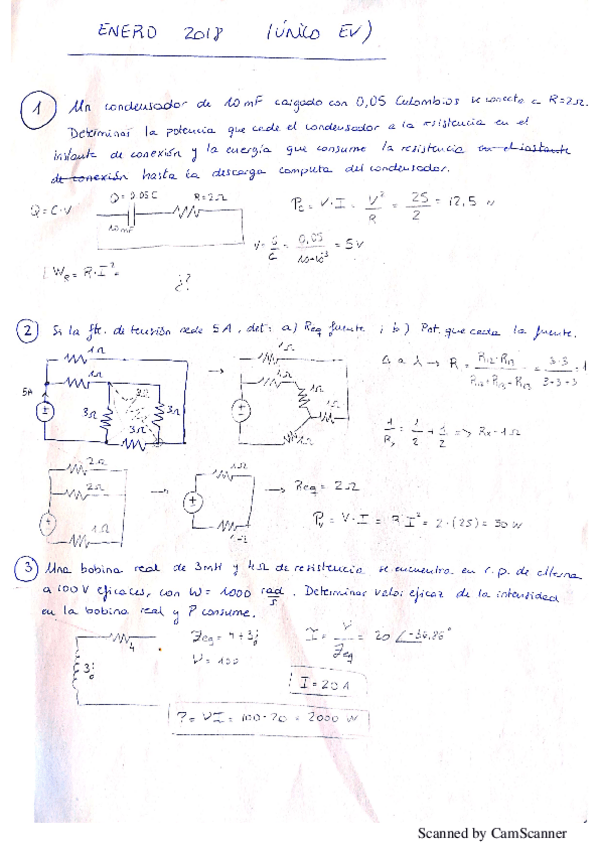 ENERO 2018 (ÚNICO EV)
1 Un condensador de 10mF cargado con 0,05 Culombios se conecta a R=2Ω.
Determinar la potencia que cede el condensador a la resistencia en el
instante de conexión y la energía que consume la resistencia en el instante
de conexión hasta la descarga completa del condensador.
Q=C·V
Q=0.05C R=2Ω
10mF
Pc = V·I = V²/R = 25/2 = 12,5
V= Q/C = 0,05/10·10⁻³ = 5V
W_R = R·I²=
¿?
2 Si la fte. de tensión cede 5A, det: a) Req fuente ; b) Pot. que ceda la fuente.
1Ω
1Ω
5A
3Ω 3Ω 3Ω
3Ω
1Ω
1Ω
1Ω
1Ω
→ R = R12·R13/R12+R13+R23 = 3·3/3+3+3 = 1
1/Rx = 1/2 + 1/2 => Rx=1Ω
2Ω
2Ω
1Ω
1Ω
1Ω
→ Req = 2Ω
Pv = V·I = R I² = 2·(25) = 50 W
3 Una bobina real de 3mH y 4Ω de resistencia se encuentra en r.p. de alterna
a 100V eficaces, con W= 1000 rad/s. Determinar valor eficaz de la intensidad
en la bobina real y P consume.
4
3j
Zeq = 4+3j
V=100
I = V/Zeq = 20∠-36,86°
I=20A
P= VI = 100·20 = 2000 W
Scanned by CamScanner